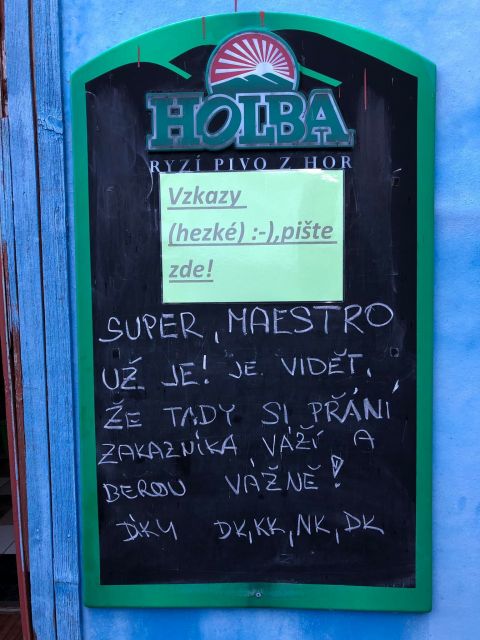 HOLBA
RYZÍ PIVO Z HOR
Vzkazy
(hezké) :-),pište
zde!
SUPER, MAESTRO
UŽ JE! JE VIDĚT,
ŽE TADY SI PŘÁNÍ
ZAKAZNÍKA VÁŽÍ A
BEROU VÁŽNĚ!
DÍKY DK,KK,NK,DK